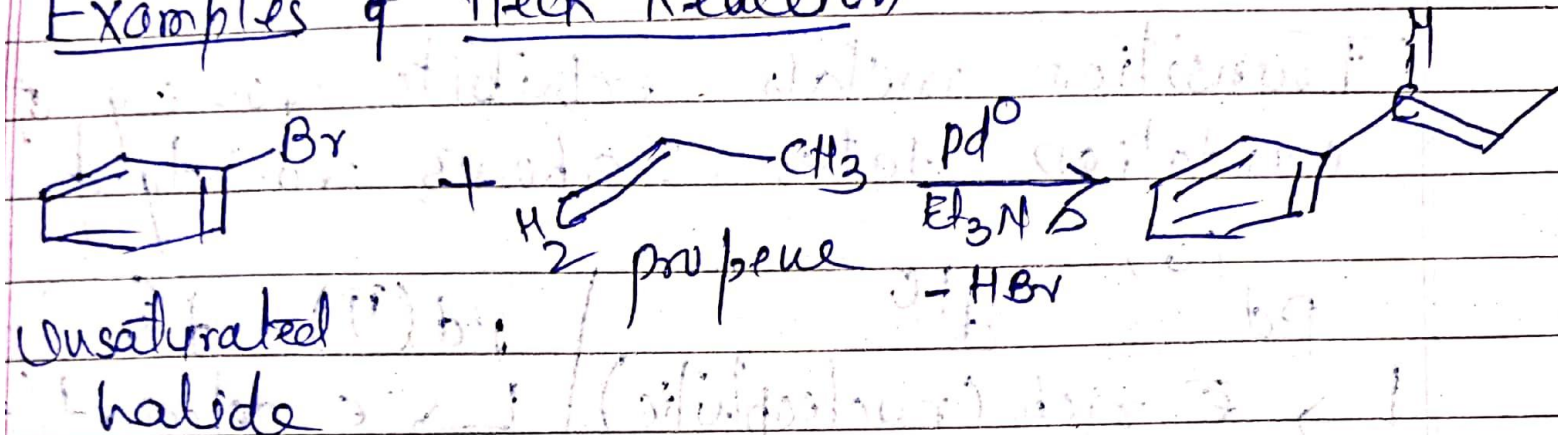 Examples of Heck Reaction
H
Br + H2C CH3 Pd⁰ C
Et3N Δ
propene - HBr
Unsaturated
halide